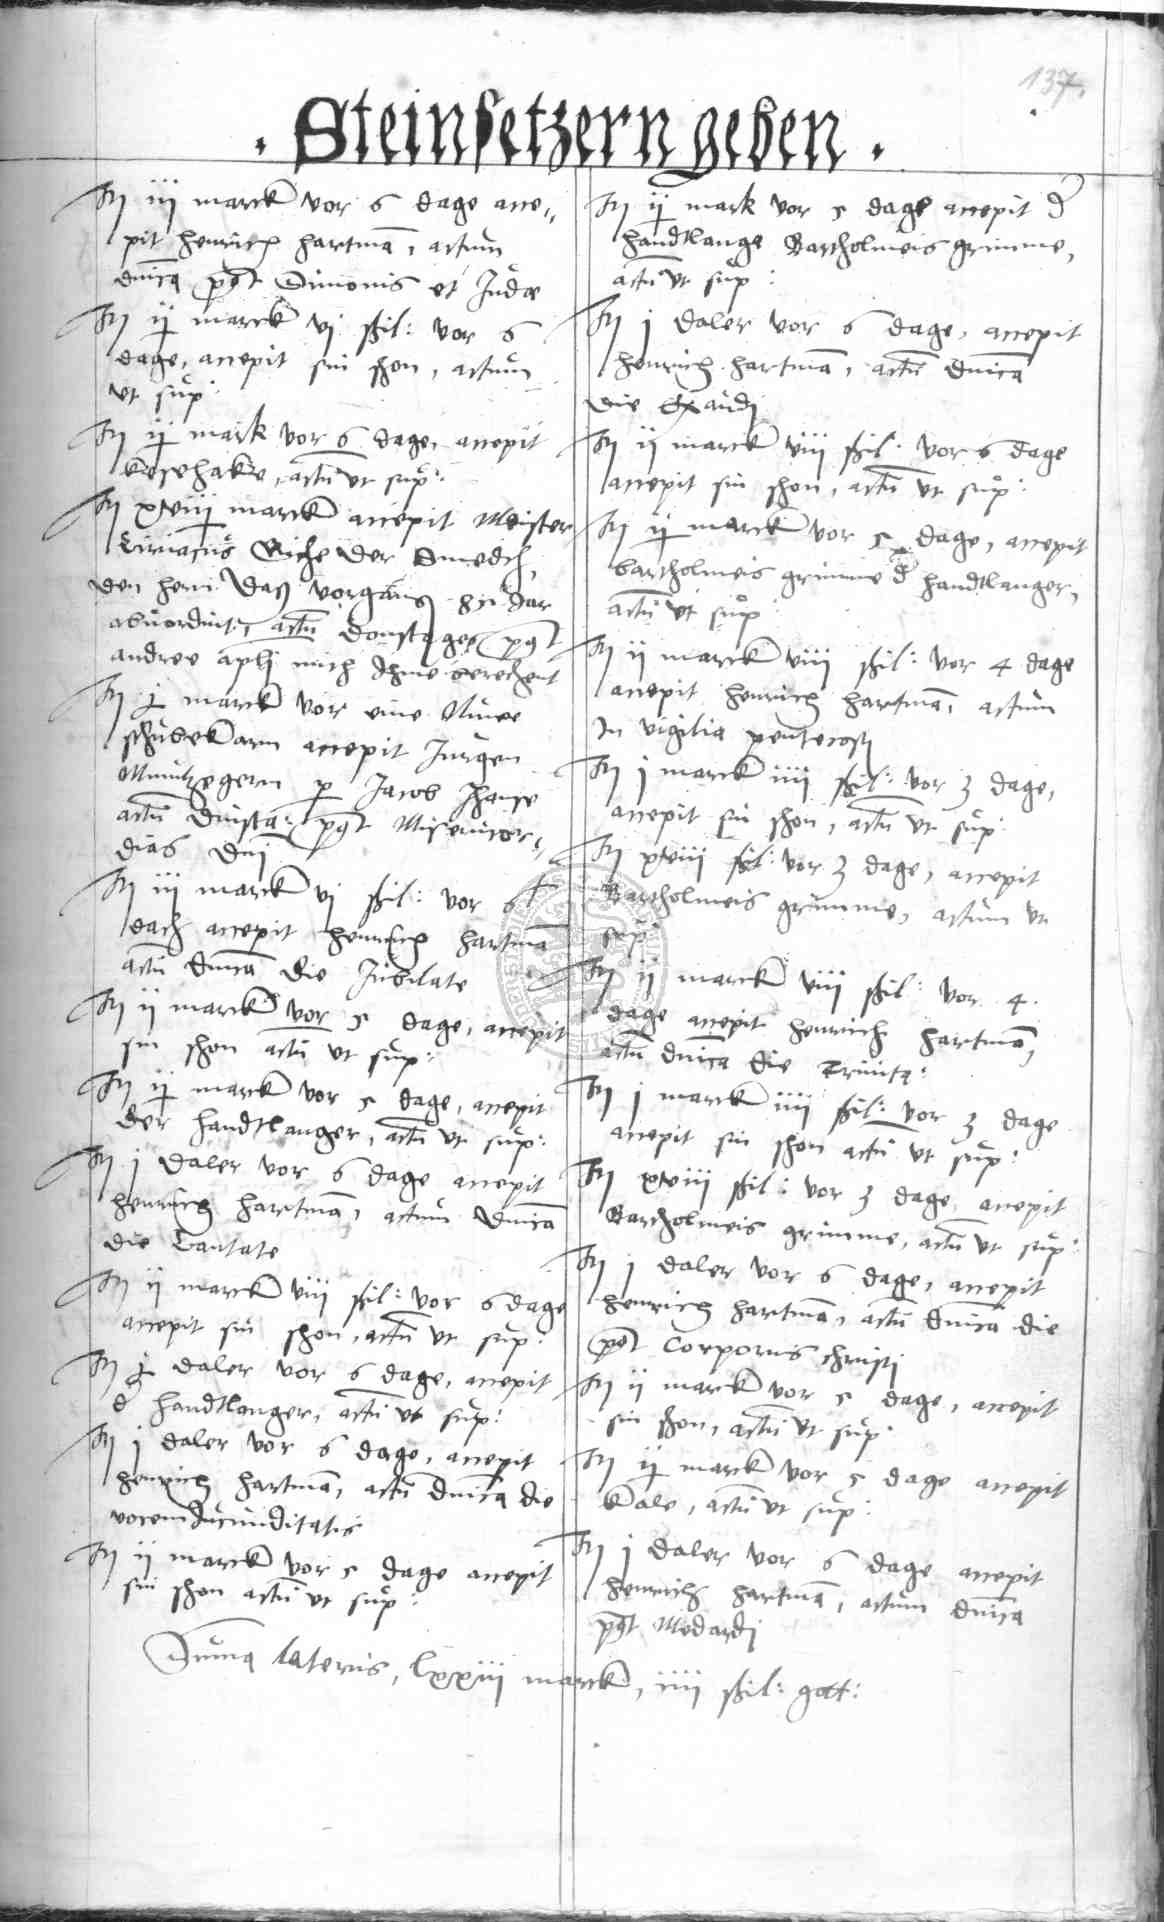 137.
. Steinsetzern geben .
It iij marck vor 6 dage acce„
pit Henrich Hartmā, actum
dnica post Simonis et Judæ
It ij marck vj ßil: vor 6
dage, accepit sin shon, actum
vt sup:
It ij mark vor 6 dage, accepit
Kesehake, actū vt sup:
It xviij marck accepit Meister
Ciriacus Riche der Smedth,
den hern das vorgang
actū Donstages post
andree apli mith Ihme berechent
It j marck vor eine Nuwe
schuvekarn accepit Jurgen
p Jacob Hanse
actū Dinsta: post Misericor„
dias Dnj
It iij marck vj ßil: vor 6
dach accepit Henrich Hartmā
actū dnica die Jubilate
It ij marck vor 5 dage, accepit
sin shon actū vt sup:
It ij marck vor 5 dage, accepit
der handtlanger, actū vt sup:
It j daler vor 6 dage accepit
Henrich Hartmā, actum dnica
die Cantate
It ij marck viij ßil: vor 6 dage
accepit sin shon, actū vt sup:
It j daler vor 6 dage, accepit
d handtlanger, actū vt sup:
It j daler vor 6 dage, accepit
Henrich Hartmā, actū dnica die
vocem Jucunditatis
It ij marck vor 5 dage accepit
sin shon actū vt sup:
It ij mark vor 5 dage accepit d
handtlange Bartholmeis grimme,
actū vt sup:
It j daler vor 6 dage, accepit
Henrich Hartmā, actū dnica
die Exaudj
It ij marck viij ßil: vor 6 dage
accepit sin shon, actū vt sup:
It ij marck vor 5 dage, accepit
bartholmeis grimme d handtlanger,
actū vt sup
It ij marck viij ßil: vor 4 dage
accepit Henrich Hartmā, actum
In vigilia pentecost
It j marck iiij ßil: vor 3 dage,
accepit sin shon, actū vt sup:
It xviij ßil: vor 3 dage, accepit
Bartholmeis grimme, actum vt
sup:
It ij marck viij ßil: vor 4
dage accepit Henrich Hartmā,
actū dnica die Trinita:
It j marck iiij ßil: vor 3 dage
accepit sin shon actū vt sup:
It xviij ßil: vor 3 dage, accepit
Bartholmeis grimme, actū vt sup:
It j daler vor 6 dage, accepit
Henrich Hartmā, actū dnica die
post Corporis christi
It ij marck vor 5 dage, accepit
sin shon, actū vt sup:
It ij marck vor 5 dage accepit
Kale, actū vt sup:
It j daler vor 6 dage accepit
Henrich Hartmā, actum dnica
post Medardj
Suma lateris, lxxiij marck, iiij ßil: gott: